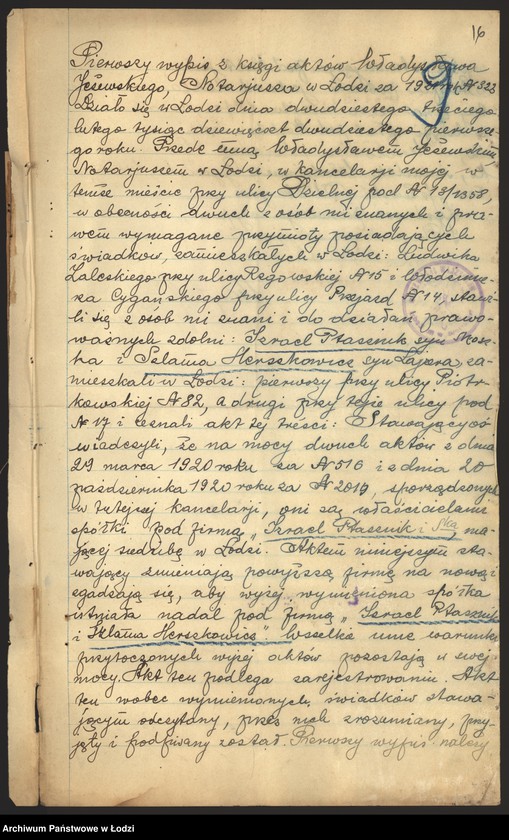 16
9
Pierwszy wypis z księgi aktów Władysława
Jeżewskiego, Notarjusza w Łodzi za 1921 r. № 323
Działo się w Łodzi dnia dwudziestego trzeciego
lutego tysiąc dziewięćset dwudziestego pierwsze-
go roku. Przede mną Władysławem Jeżewskim,
Notarjuszem w Łodzi, w kancelarji mojej, w
temże mieście przy ulicy Dzielnej pod № 13/1358,
w obecności dwuch z osób mi znanych i pra-
wem wymagane przymioty posiadających
świadków, zamieszkałych w Łodzi: Ludwika
Zalesskiego przy ulicy Rzgowskiej № 15 i Włodzimie-
rza Cygańskiego przy ulicy Przejazd № 14, stawi-
li się z osób mi znani i do działań prawo-
ważnych zdolni: Izrael Ptasznik syn Mosz-
ka i Szlama Herszkowicz syn Lajzra, za-
mieszkali w Łodzi: pierwszy przy ulicy Piotr-
kowskiej № 82, a drugi przy tejże ulicy pod
№ 17 i zeznali akt tej treści: Stawający oś-
wiadczyli, że na mocy dwuch aktów z dnia
29 marca 1920 roku za № 516 i z dnia 20
października 1920 roku za № 2019, sporządzonych
w tutejszej kancelarji, oni są właścicielami
spółki pod firmą „Izrael Ptasznik i S-ka", ma-
jącej siedzibę w Łodzi. Aktem niniejszym sta-
wający zmieniają powyższą firmę na nową i
zgadzają się, aby wyżej wymieniona spółka
istniała nadal pod firmą „Izrael Ptasznik
i Szlama Herszkowicz". Wszelkie inne warunki
przytoczonych wyżej aktów pozostają w swej
mocy. Akt ten podlega zarejestrowaniu. Akt
ten wobec wymienionych świadków stawa-
jącym odczytany, przez nich zrozumiany, przy-
jęty i podpisany został. Pierwszy wypis należy
Archiwum Państwowe w Łodzi